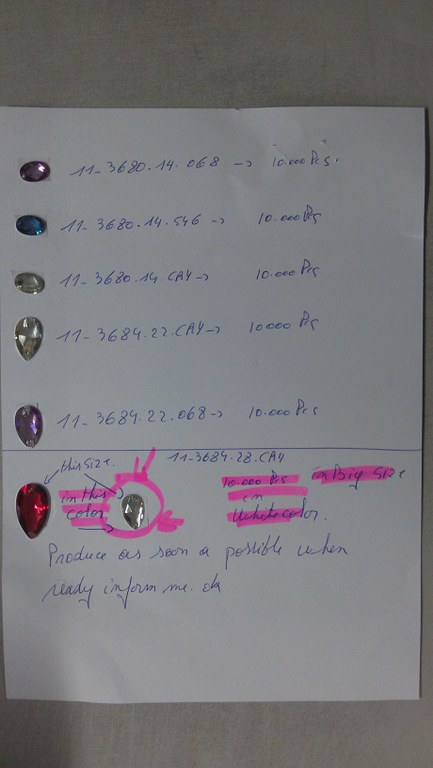 11-3680.14.068 -> 10.000 Pcs.
11-3680.14.546 -> 10.000 Pcs
11-3680.14.CAY -> 10.000 Pcs
11-3684.22.CAY -> 10000 Pcs
11-3684.22.068 -> 10.000 Pcs
11-3684.28.CAY
this size.
in this
color
10.000 Pcs in Big size
in
White color.
Produce as soon a possible when
ready inform me. ok